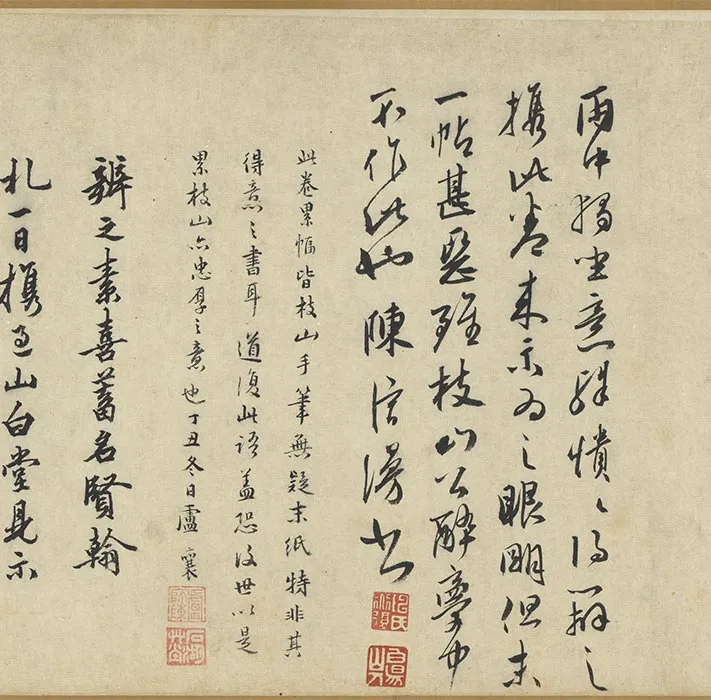 雨中獨坐意殊憒憒得辯之
携此卷来示為之眼明但末
一帖甚惡雖枝山公醉夢中
不作此也陳淳漫書
此卷累幅皆枝山手筆無疑末紙特非其
得意之書耳道復此語盖恐後世以是
累枝山亦忠厚之意也丁丑冬日盧襄
辨之素喜蓄名賢翰
札一日携過山白堂見示